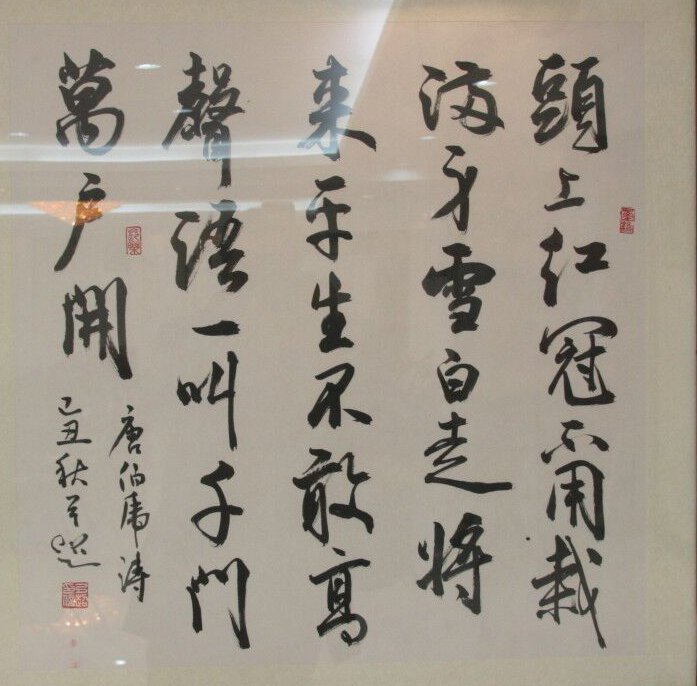 頭上红冠不用裁
滿身雪白走將
来平生不敢高
聲語一叫千門
萬户開
唐伯虎詩
己丑秋